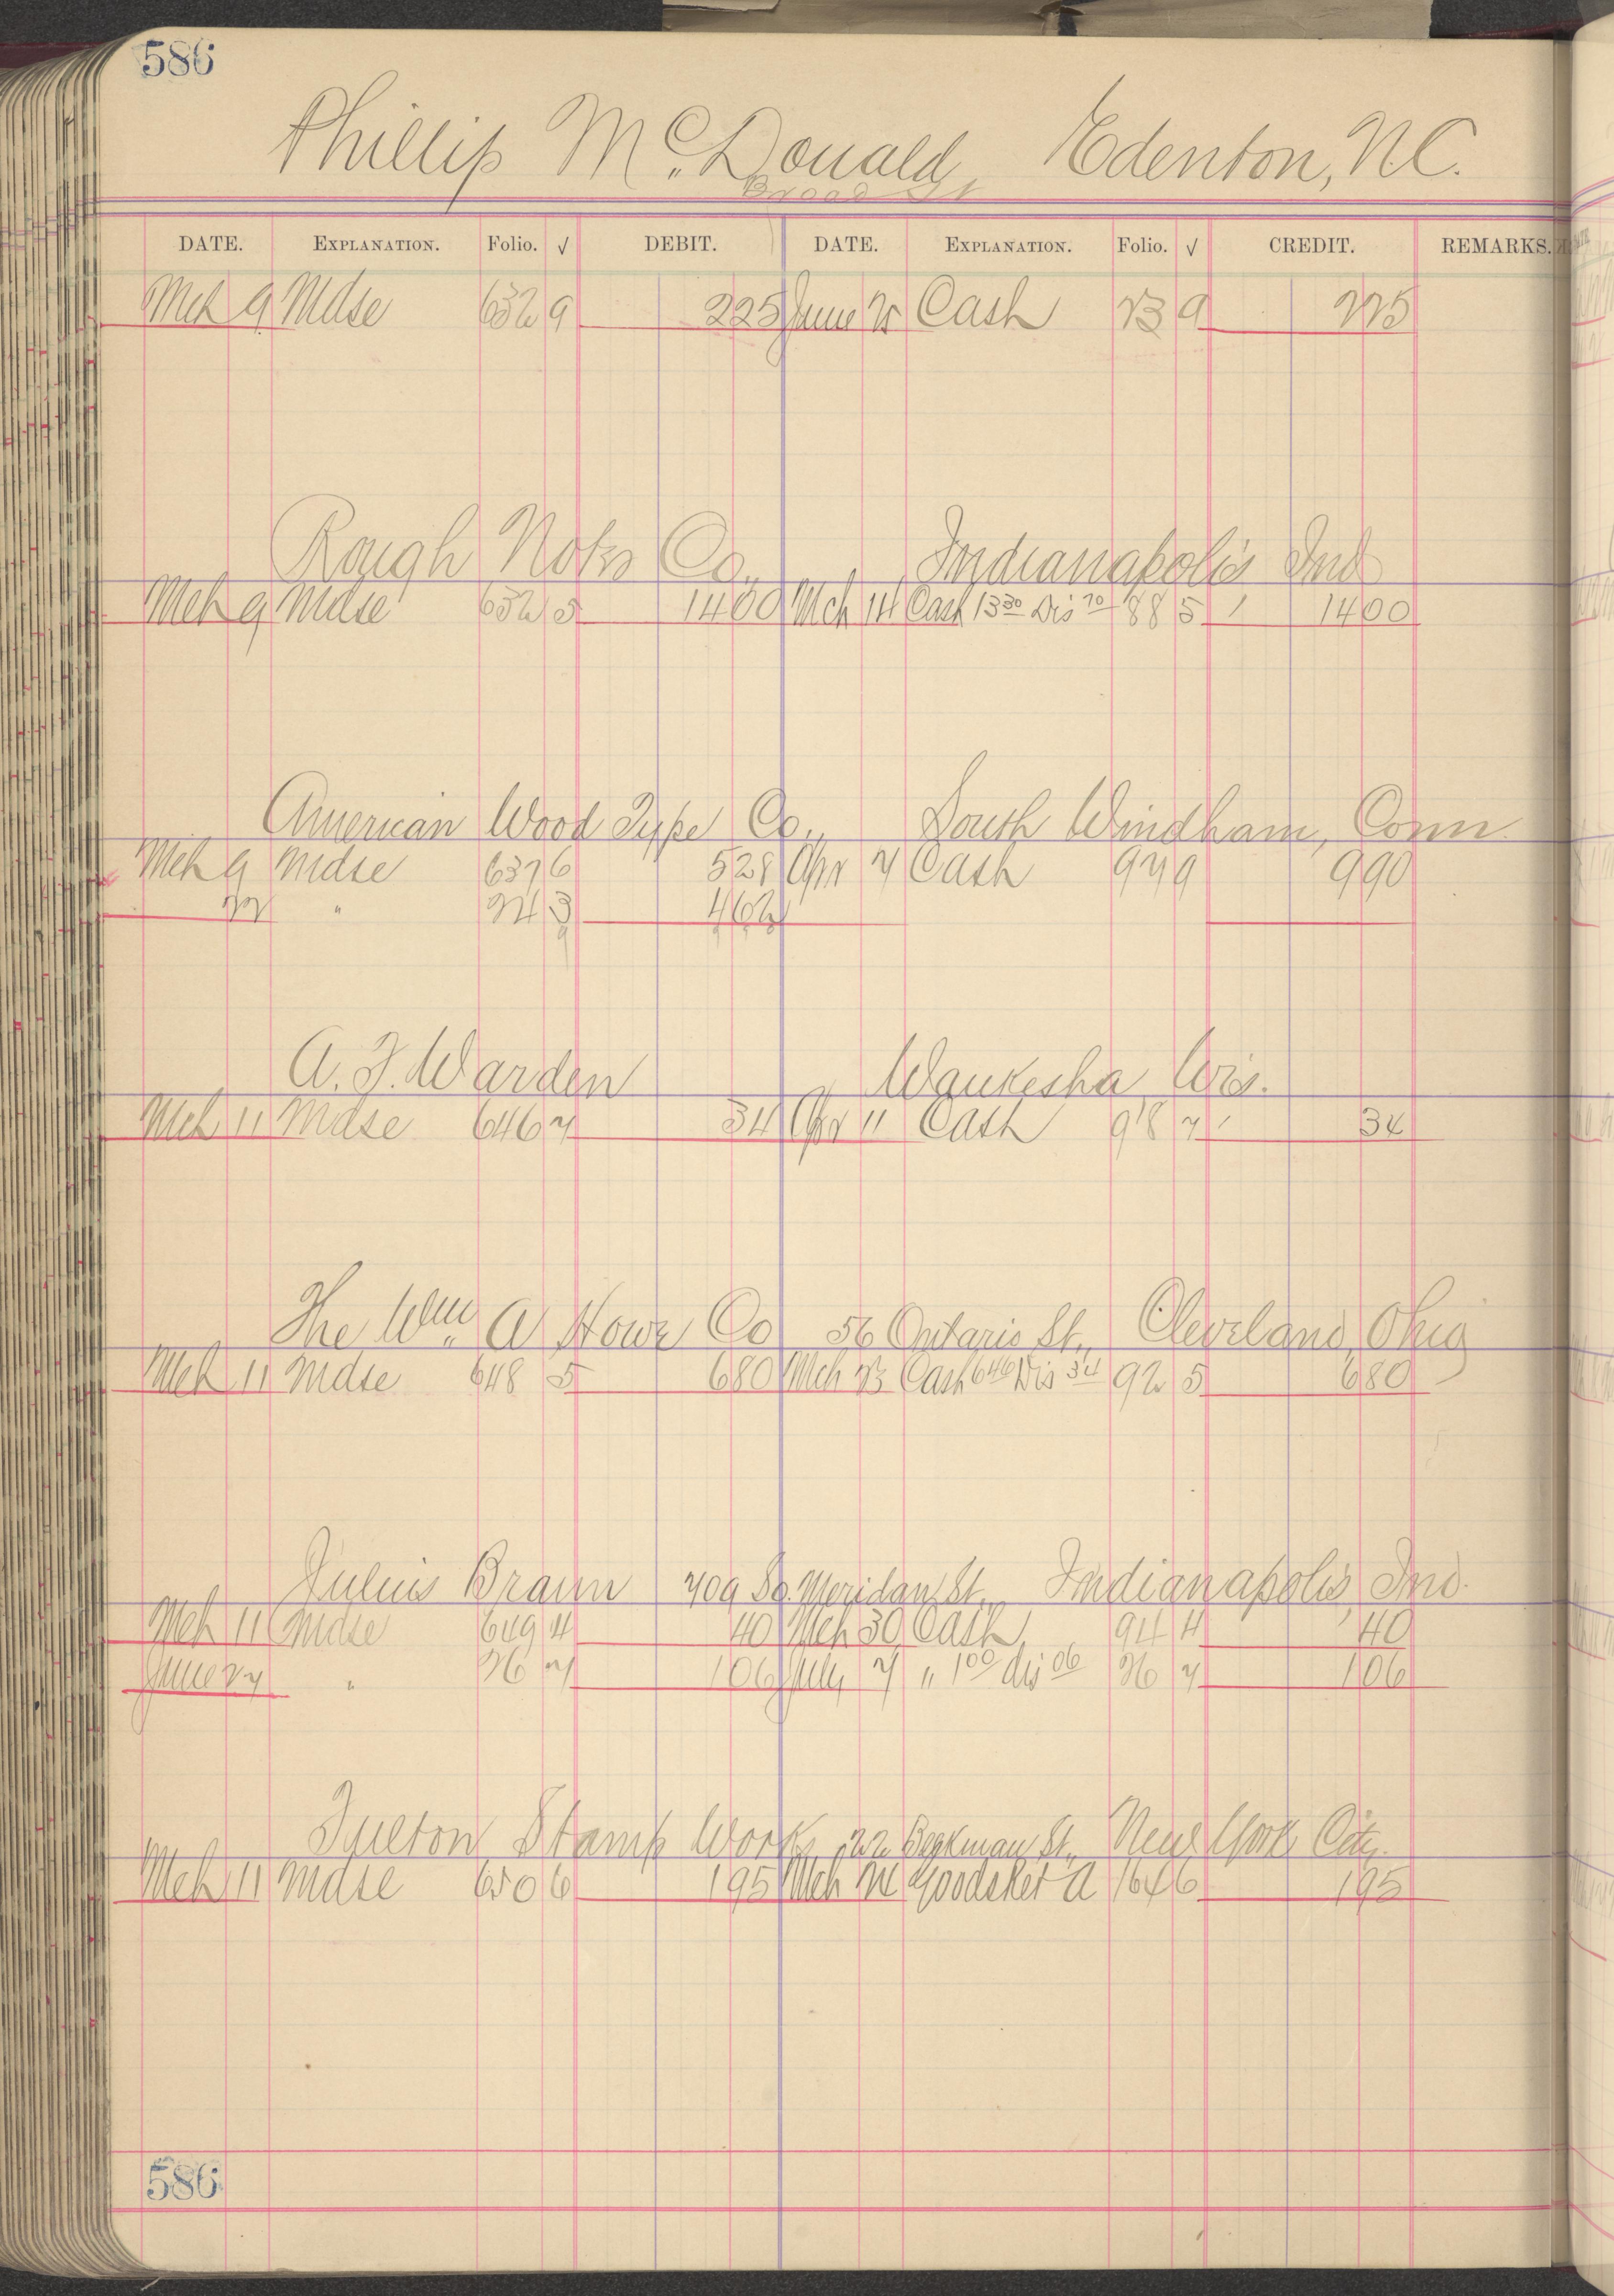 586
Phillip McDonald, Edenton, N.C.
Broad St
DATE. EXPLANATION. Folio. √ DEBIT. DATE. EXPLANATION. Folio. √ CREDIT. REMARKS.
Mch 9 Mdse 632 9 225 June 25 Cash 23 9 225
Rough Notes Co., Indianapolis Ind
Mch 9 Mdse 632 5 1400 Mch 14 Cash 13 30 Dis 70 88 5 1400
American Wood Type Co., South Windham, Conn.
Mch 9 Mdse 637 6 528 Apr 7 Cash 97 9 990
22 " 24 3 462
9
A. F. Warden Waukesha Wis.
Mch 11 Mdse 646 7 34 Apr 11 Cash 98 7 34
The Wm A Howe Co 56 Ontario St., Cleveland, Ohio
Mch 11 Mdse 648 5 680 Mch 23 Cash 646 Dis 34 92 5 680
Julius Braun 709 So. Meridan St., Indianapolis, Ind.
Mch 11 Mdse 649 4 40 Mch 30 Cash 94 4 40
June 27 " 26 7 106 July 7 " 1 00 dis 06 26 7 106
Fulton Stamp Works, 22 Beekman St., New York City.
Mch 11 Mdse 650 6 195 Mch Goods Ret A 164 6 195
586